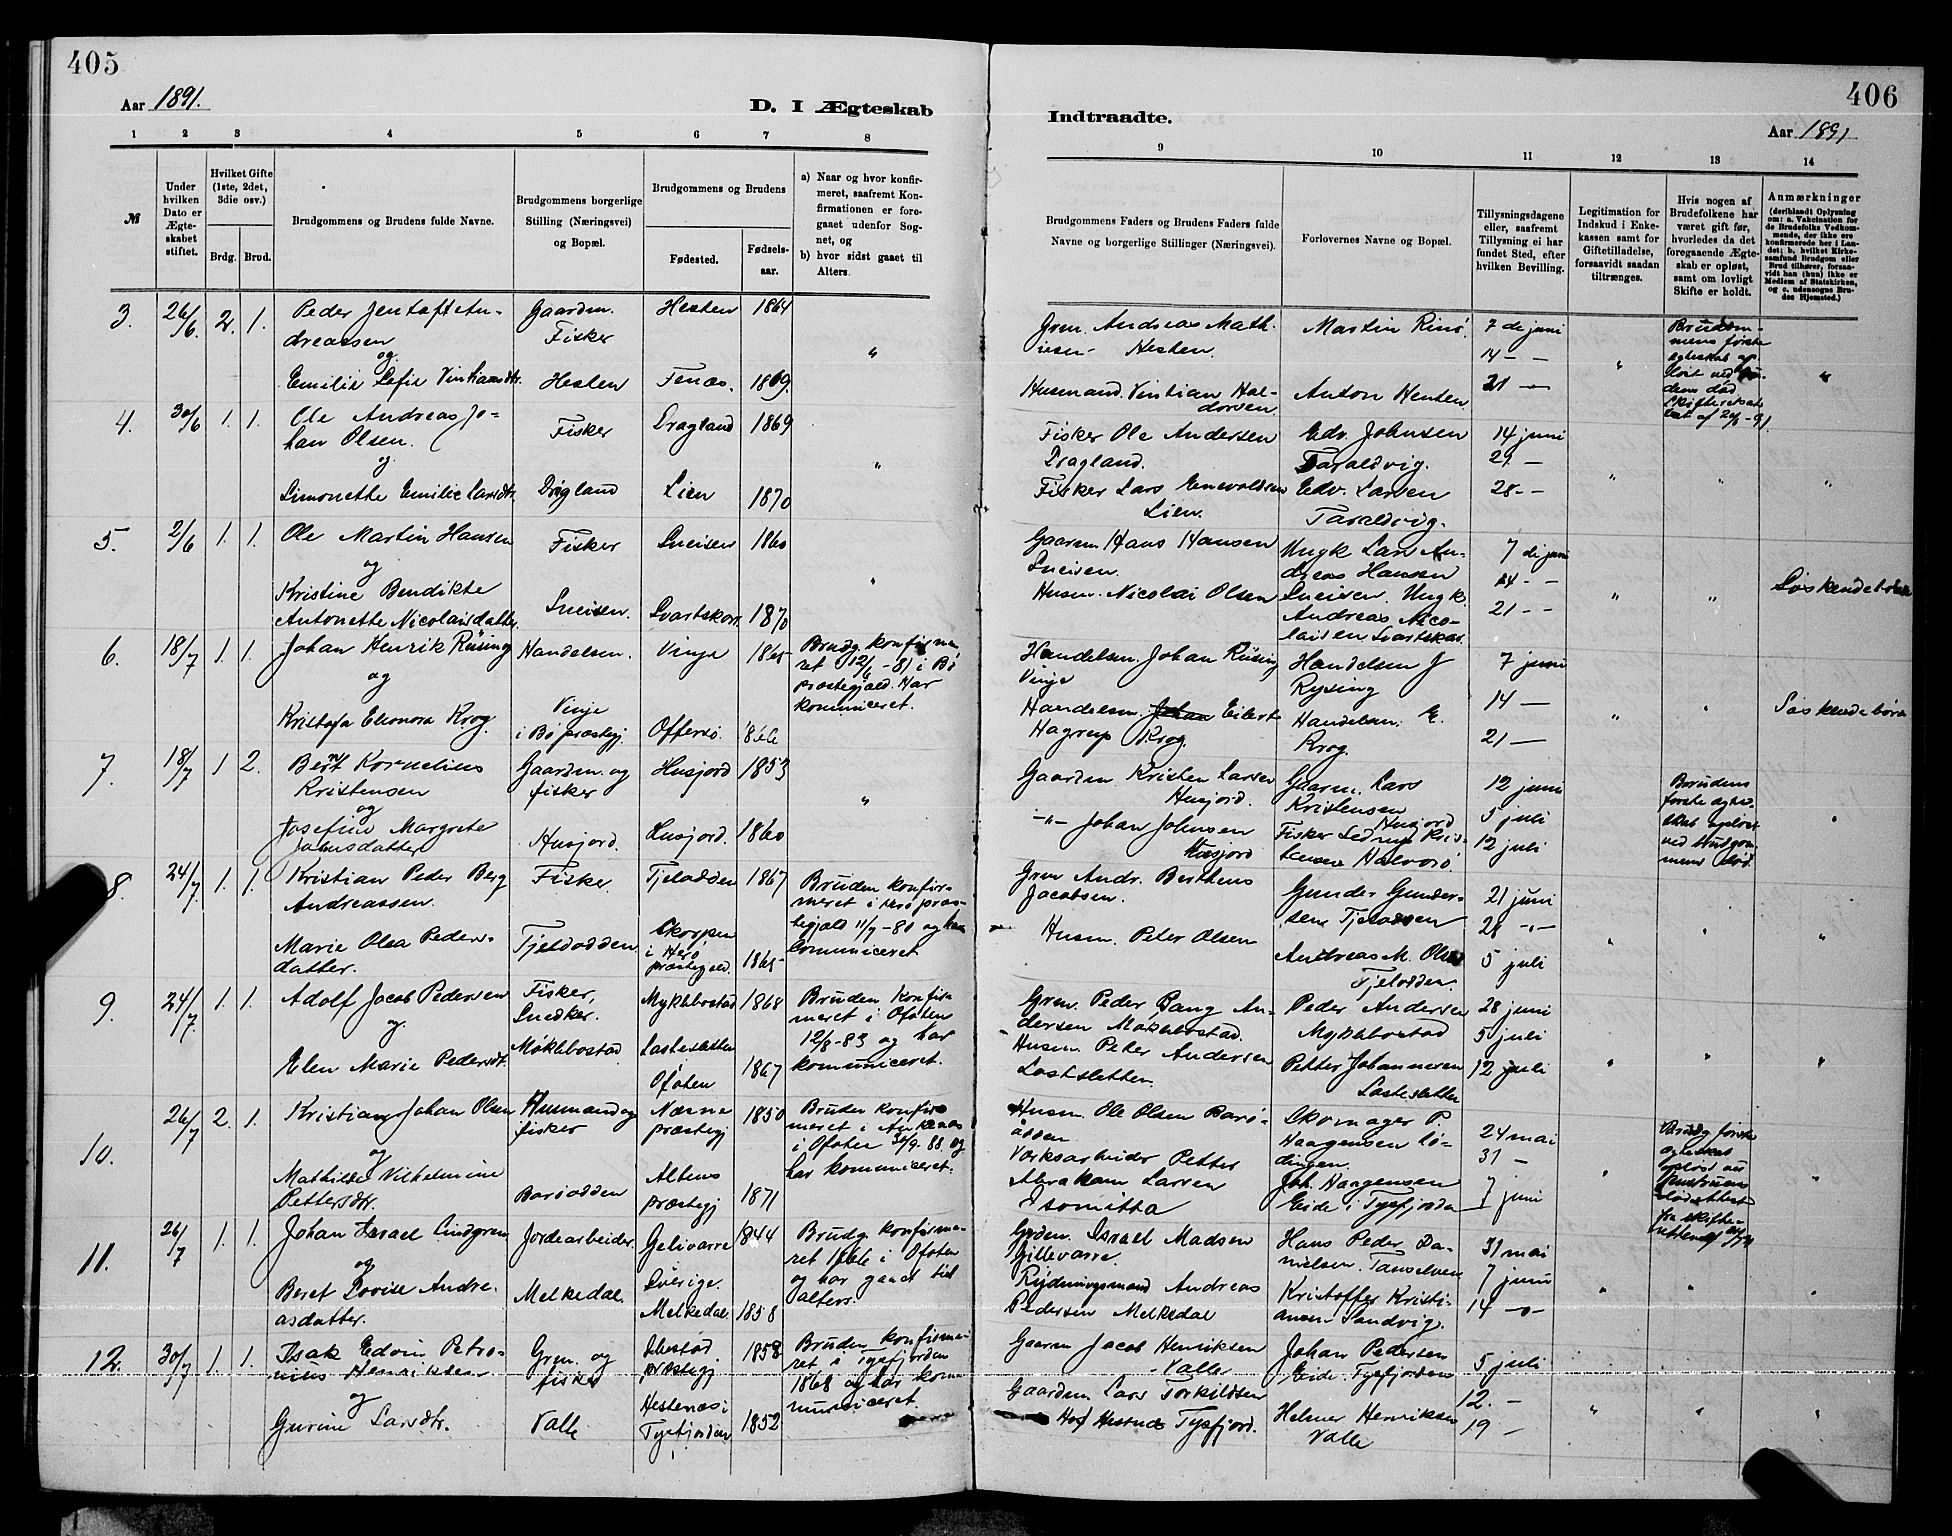 405
Aar 1891.
D. I Ægteskab
1 2 3 4 5 6 7 8
№
Under hvilken Dato er Ægteskabet stiftet.
Hvilket Gifte (1ste, 2det, 3die osv.)
Brdg. Brud.
Brudgommens og Brudens fulde Navne.
Brudgommens borgerlige Stilling (Næringsvei) og Bopæl.
Brudgommens og Brudens
Fødested.
Fødselsaar.
a) Naar og hvor konfirmeret, saafremt Konfirmationen er foregaaet udenfor Sognet, og
b) hvor sidst gaaet til Alters.
3. 26/6. 2. 1. Peder Jentoft An- Gaardm. Hesten 1864
dreassen Fisker
og "
Emilie Sofie Vintiansdtr. Hesten Fenæs. 1869.
4. 30/6 1. 1. Ole Andreas Jo- Fisker Dragland 1869
han Olsen.
og "
Simonette Emilie Larsdtr. Dragland Lien 1870
5. 2/6 1. 1. Ole Martin Hansen Fisker Sneisen 1860
og
Kristine Bendikte "
Antonette Nicolaisdatter Sneisen. Svartskar. 1870
6. 18/7 1. 1. Johan Henrik Rüsing Handelsm. Vinje 1865 Brudg. konfirme-
ret 12/6-81 i Bø
og præstegjæld. Har
Vinje komuniceret.
Kristofa Eleonora Krog. i Bø præstegj. Offersø. 1866
7. 18/7 1 2. Bernt Kornelius Gaardm. og Husjord 1853
Kristensen fisker
og "
Josefine Margrete Husjord. Husjord. 1860
Johnsdatter
8. 24/7. 1. 1. Kristian Peder Berg Fisker. Tjelodden 1867 Bruden konfir-
Andreassen. meret i Herø præs-
Skorpen tegjæld 11/7-80 og har
Marie Olea Peders- Tjeldodden. i Herø komuniceret
datter. præstegjeld. 1865
9. 24/7. 1. 1. Adolf Jacob Pedersen Fisker, Myklebostad 1868 Bruden konfir-
og Snedker. meret i Ofoten
Møklebostad Lasteslætten 12/8-83 og har
Elen Marie Pedersdt. Ofoten 1867 komuniceret.
10. 26/7 2. 1. Kristian Johan Olsen Husmand og Næsne 1850 Bruden konfir-
fisker præstegj meret i Ankenes
og i Ofoten 30/9. 88. og
Mathilde Vilhelmine Altens har komuniceret.
Pettersdtr. Barøodden præstegj 1871
11. 26/7 1. 1. Johan Israel Lindgren Jordearbeider. Gelivarre 1844 Brudg konfirme-
og Sverige. ret 1866 i Ofoten
Beret Lovise Andre- Melkedal. og har gaaet til
asdatter. Melkedal 1858 alters.
12. 30/7 1. 1. Isak Edvin Petro- Grm. og Ibestad 1858 Bruden konfirme-
nius Henriksen fisker præstegj ret i Tysfjorden
og Hestenes i 1868 og har kom-
Gurine Larsdtr. Valle Tysfjorden 1852 municeret.
406
Indtraadte.
Aar 1891
9 10 11 12 13 14
Brudgommens Faders og Brudens Faders fulde Navne og borgerlige Stillinger (Næringsvei).
Forlovernes Navne og Bopæl.
Tillysningsdagene eller, saafremt Tillysning ei har fundet Sted, efter hvilken Bevilling.
Legitimation for Indskud i Enkekassen samt for Giftetilladelse, forsaavidt saadan tiltrænges.
Hvis nogen af Brudefolkene har været gift før, hvorledes da det foregaaende Ægteskab er opløst, samt om lovligt Skifte er holdt.
Anmærkninger
(deriblandt Oplysning om: a. Vakcination for de Brudefolks Vedkommende, der ikke ere konfirmerede her i Landet; b. hvilket Kirkesamfund Brudgom eller Brud tilhører, forsaavidt han (hun) ikke er Medlem af Statskirken, og c. udensogns Brudes Hjemsted.)
Grm. Andreas Math- Martin Rinø 7 de juni Brudgom-
iesen Hesten. 14 - - mens første
Husmand Vintian Hal- Anton Hesten 21 - " egteskab op-
dorsen løst ved
død
Skifteattest
af 26/6-91.
Fisker Ole Andersen Edv. Johnsen 14 juni
Dragland. Taraldvig. 21 -
Fisker Lars Enevoldsen Edv. Larsen 28 - - " " "
Lien. Taraldvig.
Gaarm Hans Hansen Ungk Lars An- 7 de juni
Sneisen. dreas Hansen 14 - -
Husm. Nicolai Olsen Sneisen. Ungk. 21 - - " " Søskendebørn
Andreas Nico-
laisen Svartskar.
Handelsm. Johan Rüsing Handelsm J 7 juni
Vinje Rysing 14 -
Handelsm. Johan Eilert Handelsm. E. 21 - " " Søskendebørn
Hagrup Krog. Krog.
Gaardm Kristen Larsen Gaarm. Lars 12 juni Brudens
Husjord. Kristensen første ægte-
-"- Johan Johnsen Husjord 5 juli skab opløst
Husjord Fisker Kris- 12 juli ved Brudgom-
tensen Halvorø mens død.
Grm Andr. Berthens Gunder Gunder- 21 juni
Jacobsen. sen Tjelodden 28 -"-
Husm. Peter Olsen Andreas M. Olsen 5 juli " " "
Tjelodden.
Grm. Peder Bang An- Peder Andersen 28 juni
dersen Møklebostad. Myklebostad 5 juli
Husm. Peter Andersen Petter Johannesen 12 juli " " "
Lastsletten. Lastesletten
Husm. Ole Olsen Barø- Skomager P. 24 mai Brudg første
odden Haagensen Lø- 31 - ægteskab
Værksarbeider Petter dingen. opløst ved
Abraham Larsen Joh. Haagensen 7 juni " hustruens "
Isomitta Eide i Tysfjorden død Attest
fra skifte-
retten af
Grdm. Israel Madsen Hans Peder Da- 31 mai
Gillevarre. nielsen. Tanselven 7 juni
Rydningsmand Andreas Kristoffer Kristi- 14 -"- " " "
Pedersen Melkedal ansen Sandvig.
Gaarm Jacob Henriksen Johan Pedersen 5 juli
Valle Eide Tysfjorden
Gaardm. Lars Torkildsen 12. -
Hestnes Tysfjord. Helmer Henriksen 19 - " " "
Valle